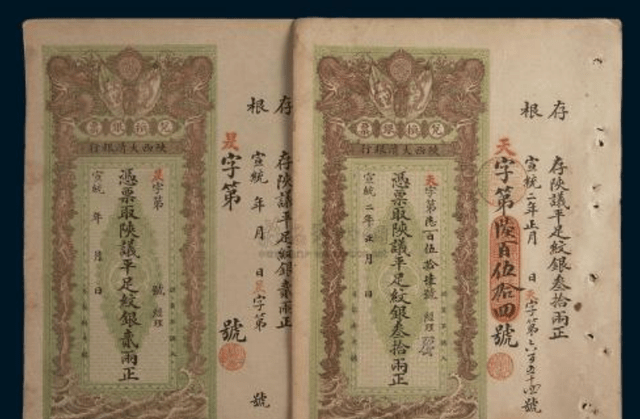 存根
存陝議平足紋銀叁拾兩正
宣統二年正月 日天字第六百五十四號
天字第陸百伍拾四號
兌換銀票
陝西大清銀行
天字第陸百伍拾 號 經理
憑票取陝議平足紋銀叁拾兩正
宣統二年正月 日
存根
存陝議平足紋銀貳兩正
宣統 年 月 日 字第 號
字第 號
兌換銀票
陝西大清銀行
字第 號 經理
憑票取陝議平足紋銀貳兩正
宣統 年 月 日